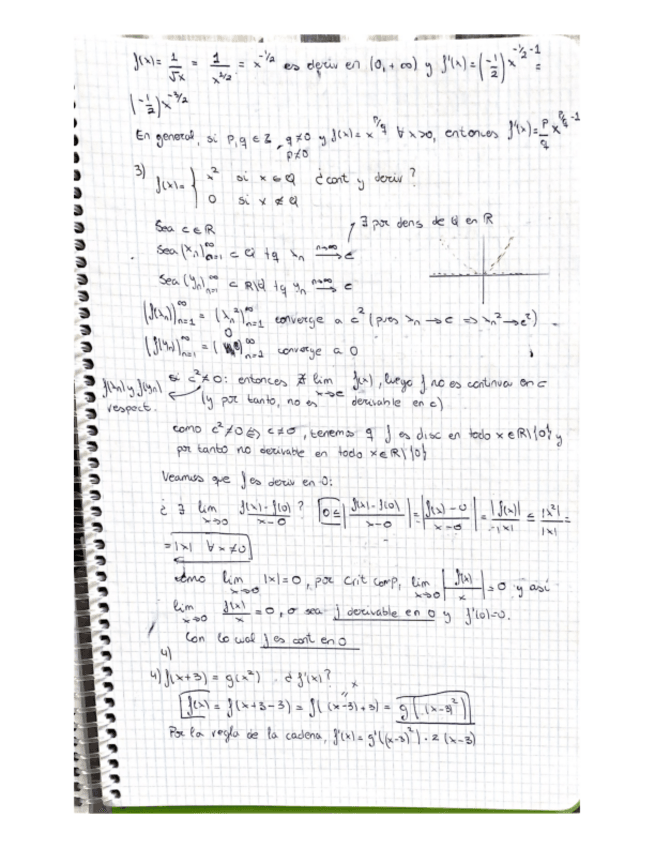 f(x) = 1/√x = 1/x^{1/2} = x^{-1/2} es deriv en (0,+∞) y f'(x) = (-1/2) x^{-1/2-1} =
(-1/2) x^{-3/2}
En general, si p, q ∈ Z, q≠0 y f(x) = x^{p/q} ∀x>0, entonces f'(x) = p/q x^{p/q-1}
p≠0
3) f(x) = { x² si x ∈ Q ¿cont y deriv?
0 si x ∉ Q
Sea c ∈ R
∃ por dens de Q en R
Sea (x_n)_{n=1}^∞ ⊂ Q tq x_n →^{n→∞} c
Sea (y_n)_{n=1}^∞ ⊂ R\Q tq y_n →^{n→∞} c
(f(x_n))_{n=1}^∞ = (x_n²)_{n=1}^∞ converge a c² (pues x_n → c ⇒ x_n² → c²)
(f(y_n))_{n=1}^∞ = (0)_{n=1}^∞ converge a 0
si c² ≠ 0: entonces ∄ lim_{x→c} f(x), luego f no es continua en c
f(x_n) y f(y_n)
respect.
(y por tanto, no es derivable en c)
como c² ≠ 0 ⇔ c ≠ 0, tenemos q f es disc en todo x ∈ R\{0} y
por tanto no derivable en todo x ∈ R\{0}
Veamos que f es deriv en 0:
¿∃ lim_{x→0} (f(x) - f(0))/(x-0)? 0 ≤ |(f(x) - f(0))/(x-0)| = |(f(x) - 0)/(x-0)| = |f(x)|/|x| ≤ |x²|/|x| =
= |x| ∀x≠0
Como lim_{x→0} |x| = 0, por crit comp, lim_{x→0} |f(x)/x| = 0 y así
lim_{x→0} f(x)/x = 0, o sea f derivable en 0 y f'(0)=0.
Con lo cual f es cont en 0
4)
4) f(x+3) = g(x²). ¿f'(x)?
x
f(x) = f(x+3-3) = f((x-3)+3) = g((x-3)²)
Por la regla de la cadena, f'(x) = g'((x-3)²) · 2(x-3)